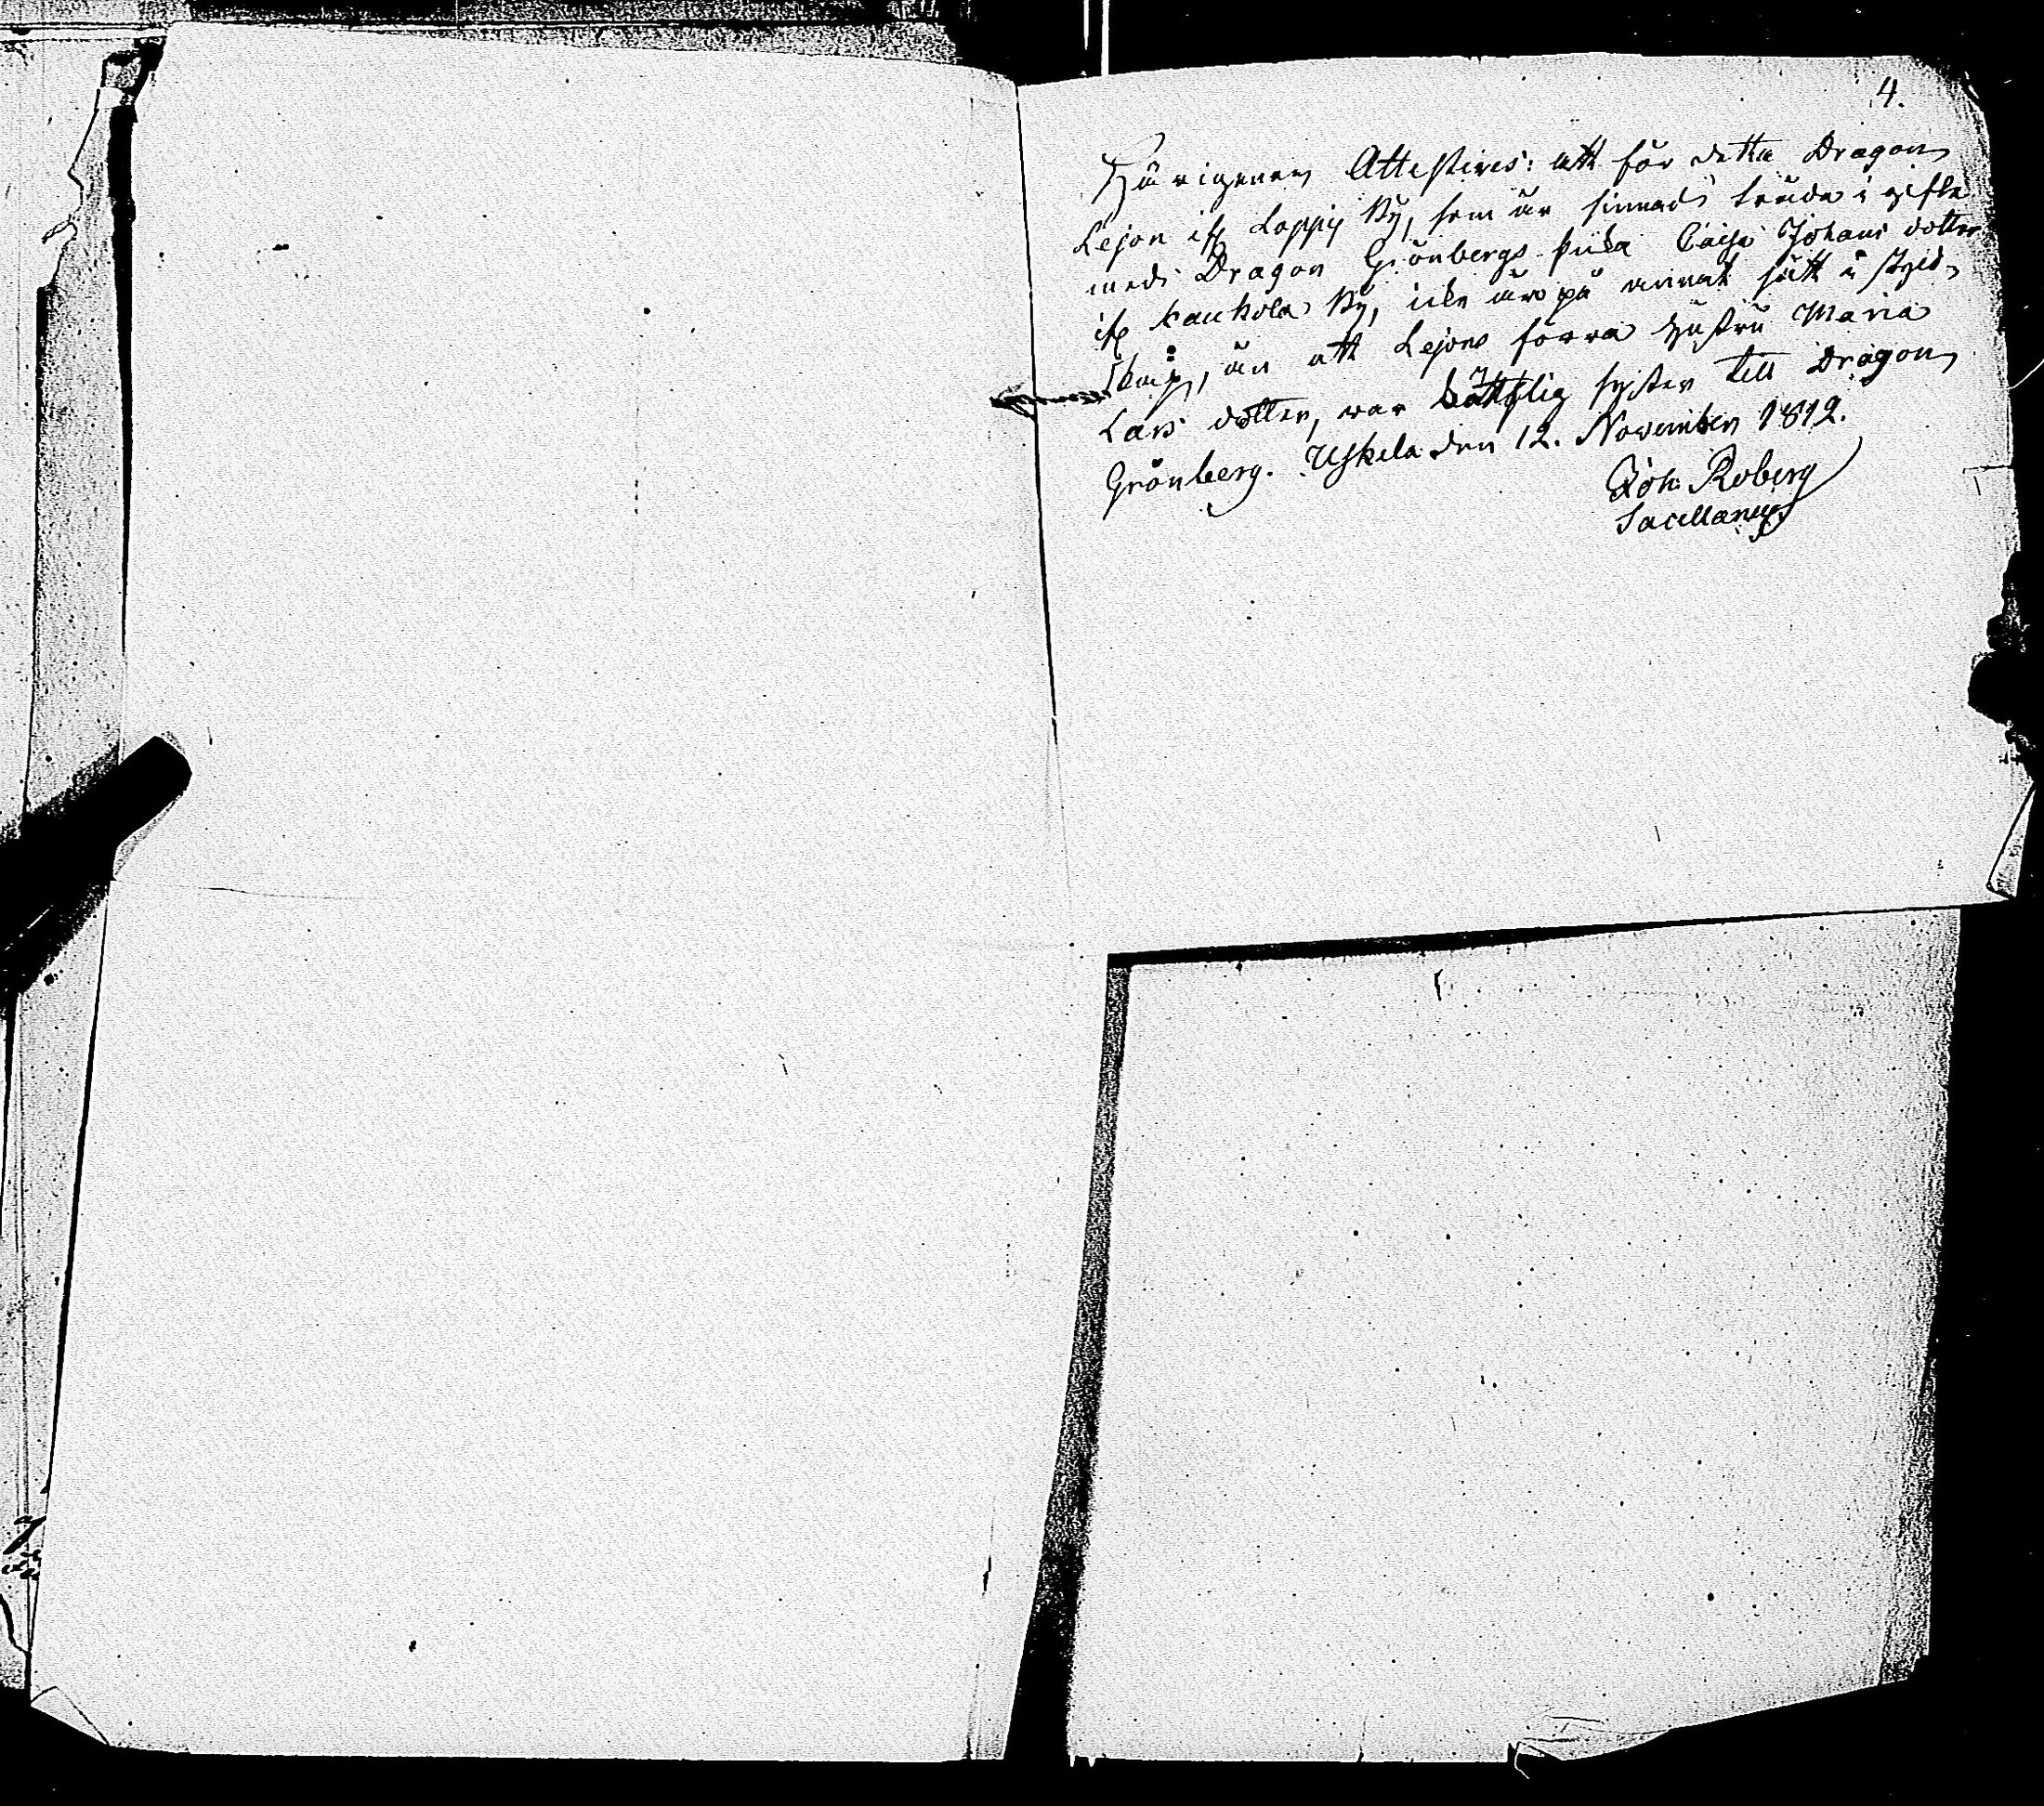 4.
Härigenom Attesteres: att för detta Dragon
Lejon ifr Loppis By, som är sinnad träda i gifte
med Dragon Grönbergs piika Caisa Johans dotter
ifr Kaukola By, icke äro på annat sätt i skyld-
skap, än att Lejons förra hustru Maria
Lars dotter, war köttslig syster till Dragon
Grönberg. Uskela den 12. November 1812.
Joh: Roberg
Sacellanus